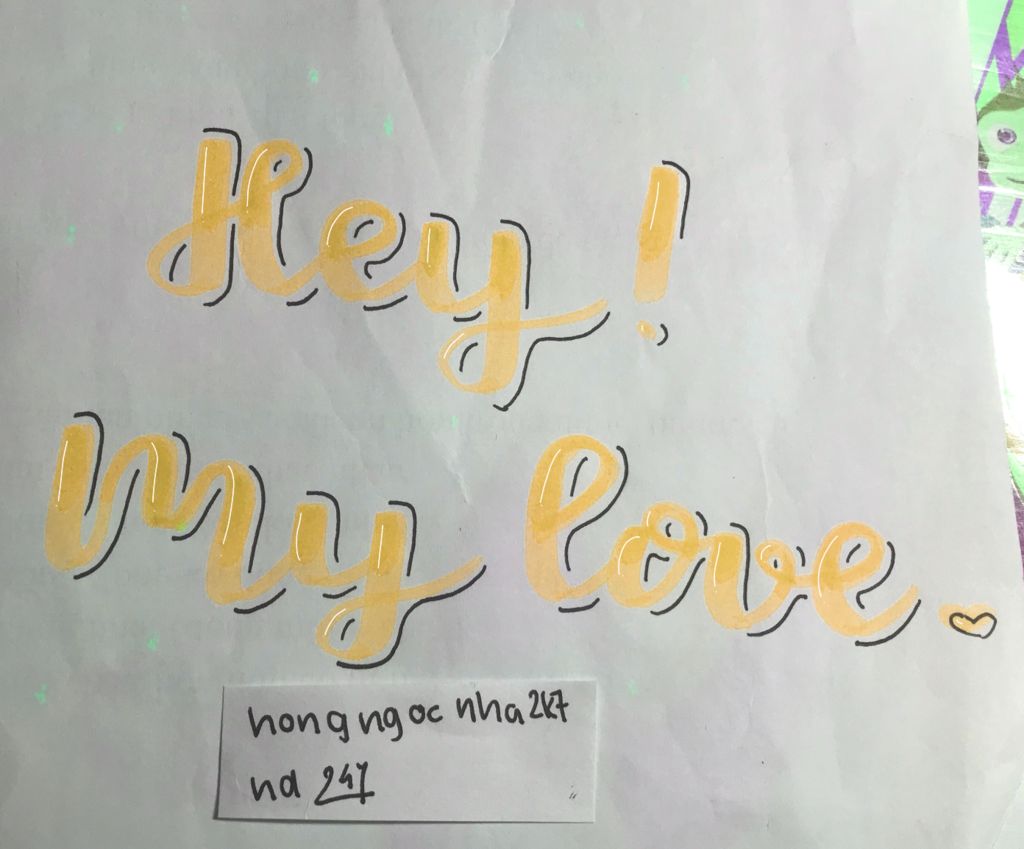 Hey !
My love.
hongngoc nha2k7
nd 247